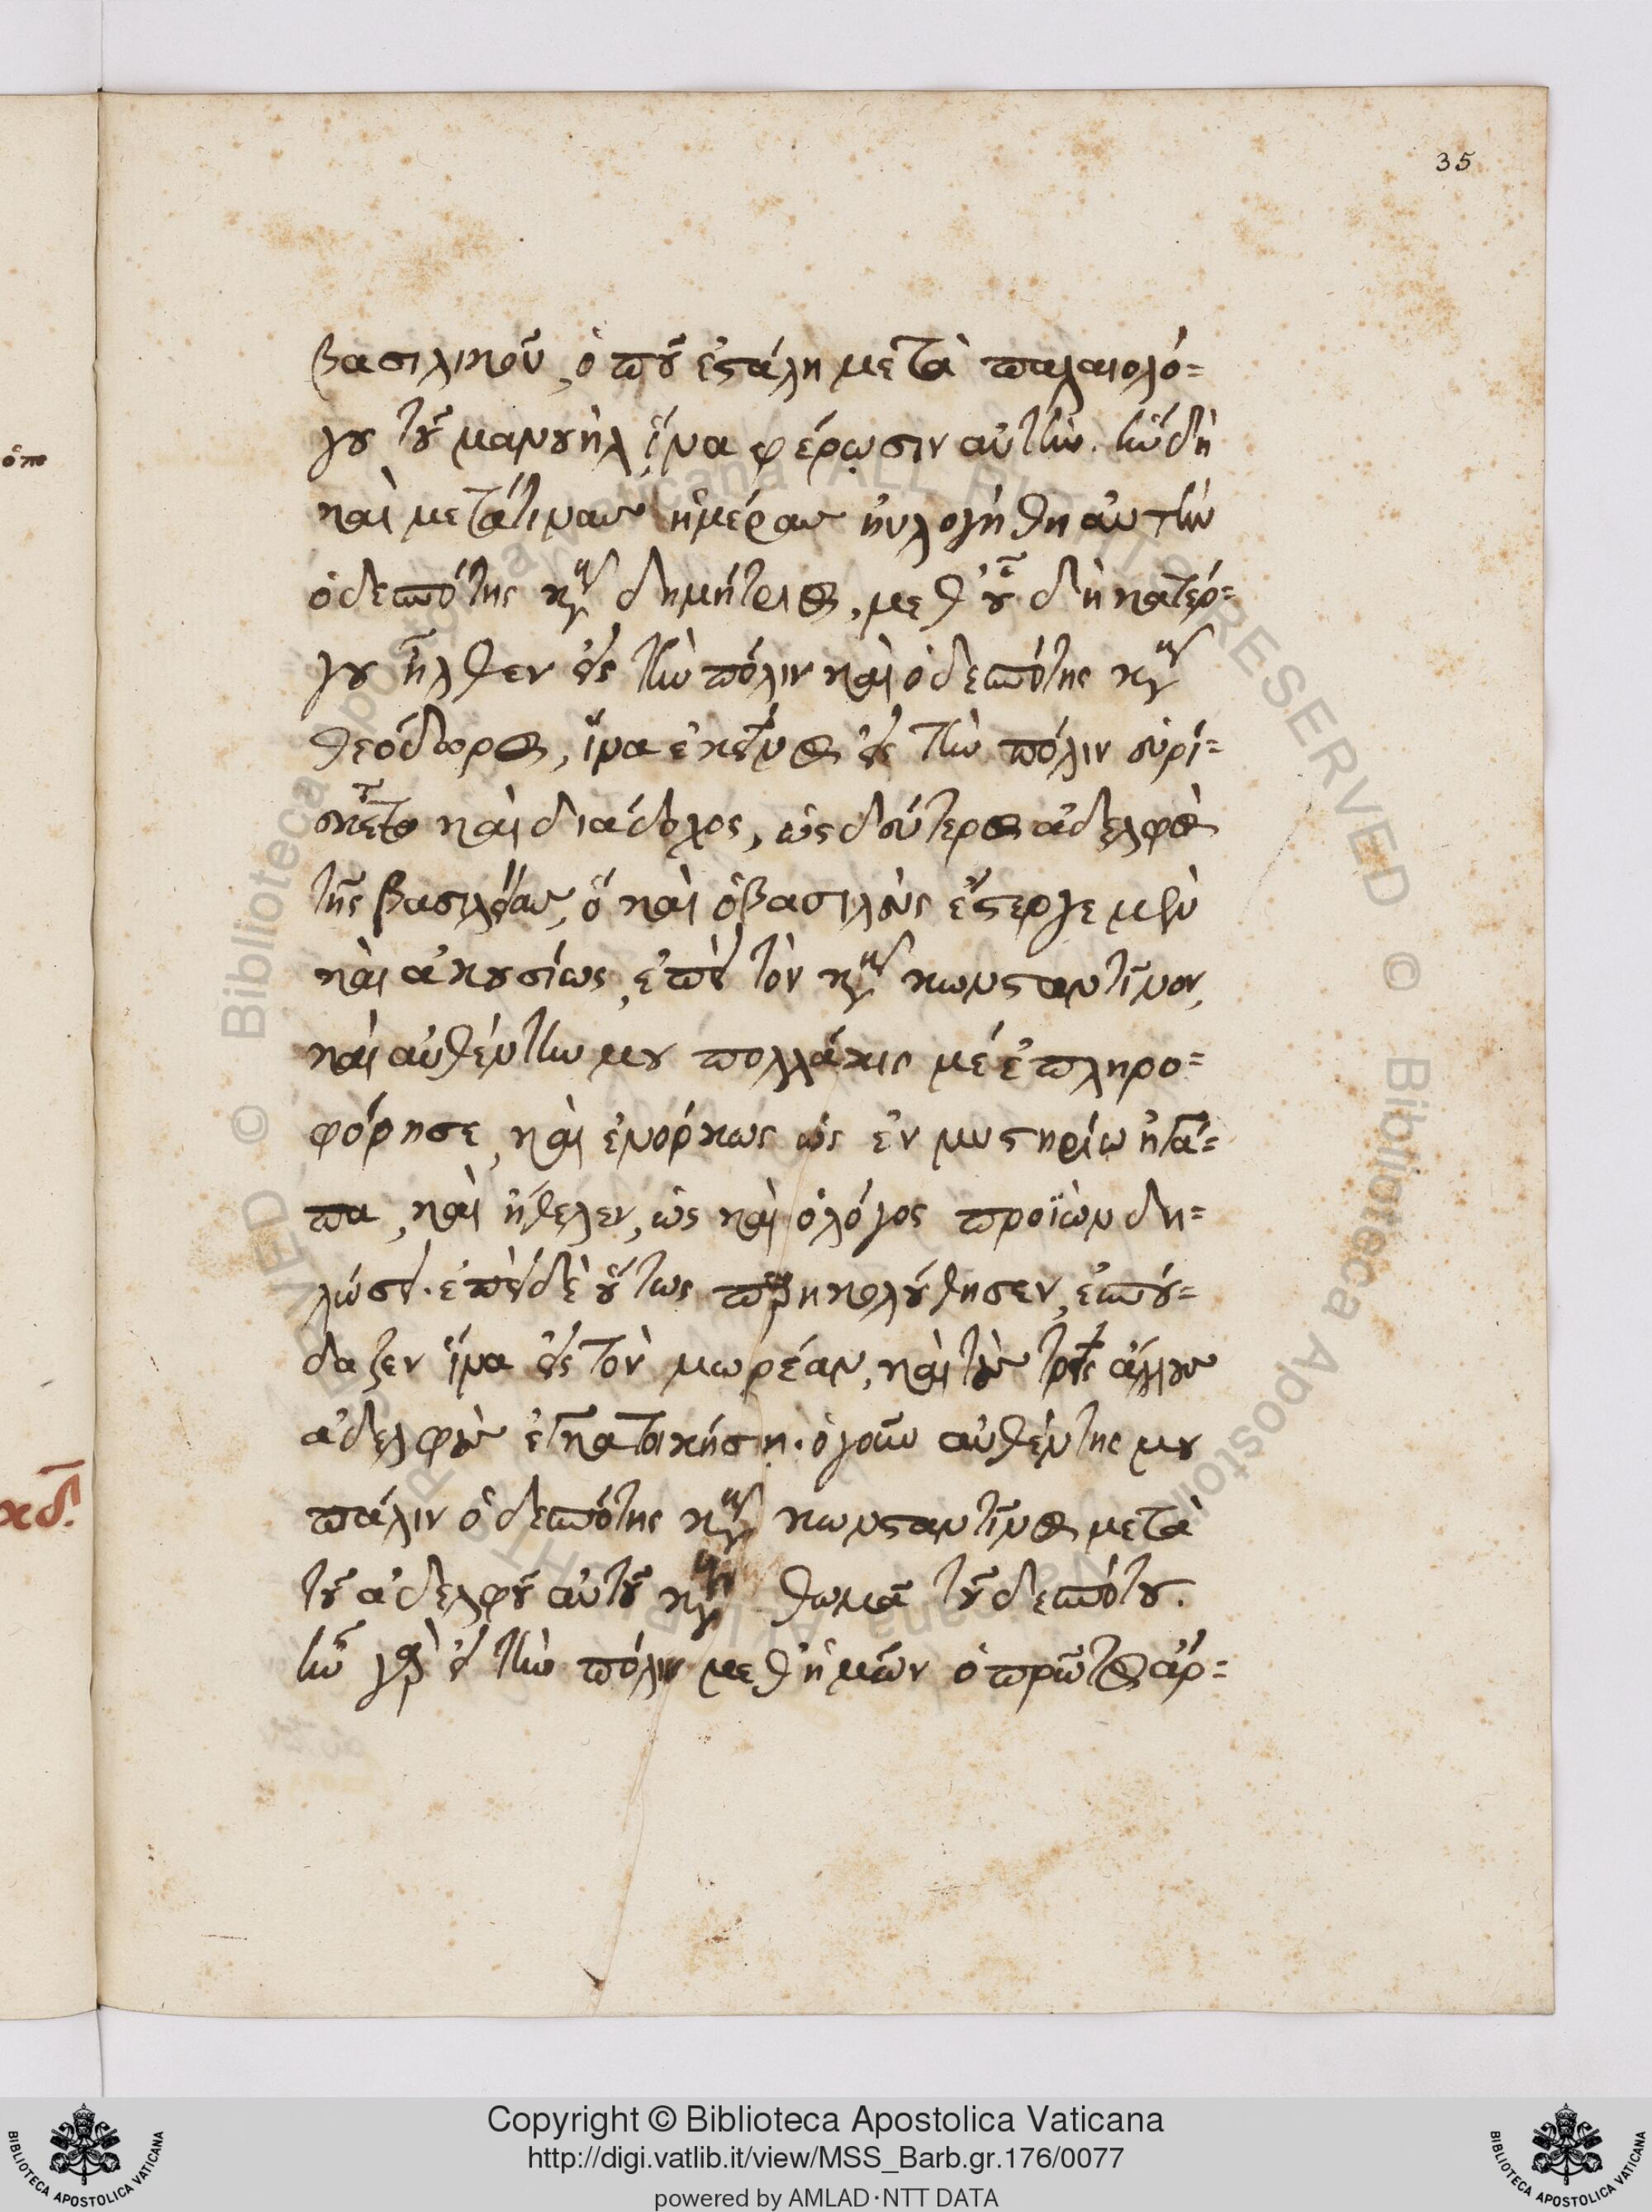 35
βασιλικοῦ, ὁποῦ ἐστάλη μετὰ παλαιολό=
γου τοῦ μανουὴλ, ἵνα φέρωσιν αὐτὴν. ἣν δὴ
καὶ μετά τινας ἡμέρας ηὐλογήθη αὐτὴν
ὁ δεσπότης κὺρ δημήτριος, μεθ' οὗ δὴ κατέρ=
γου ἦλθεν εἰς τὴν πόλιν καὶ ὁ δεσπότης κὺρ
θεόδωρος, ἵνα ἐκεῖνος εἰς τὴν πόλιν εὑρί=
σκεται καὶ διάδοχος, ὡς δεύτερος ἀδελφὸς
τῆς βασιλείας, ὃ καὶ ὁ βασιλεὺς ἔστεργε μὲν
καὶ ἀκουσίως, ἐπεὶ τὸν κὺρ κωνσταντῖνον,
καὶ αὐθέντην μου πολλάκις μὲ ἐπληρο=
φόρησε, καὶ ἐνόρκως ὡς ἐν μυστηρίω ἠγά=
πα, καὶ ἤθελεν, ὡς καὶ ὁ λόγος προϊὼν δη=
λώσει. ἐπεὶ δὲ οὕτως παρηκολούθησεν, ἐσπού=
δαζεν ἵνα εἰς τὸν μωρέαν, καὶ τοὺς τρεῖς ἄλλους
ἀδελφοὺς
ὁ γοῦν αὐθέντης μου
πάλιν ὁ δεσπότης κὺρ κωνσταντῖνος μετὰ
τοῦ ἀδελφοῦ αὐτοῦ κὺρ θωμᾶ τοῦ δεσπότου.
ἦν γὰρ εἰς τὴν πόλιν μεθ' ἡμῶν ὁ πρῶτος ἀρ=
κδ.
Copyright © Biblioteca Apostolica Vaticana
http://digi.vatlib.it/view/MSS_Barb.gr.176/0077
powered by AMLAD·NTT DATA
BIBLIOTECA APOSTOLICA VATICANA
BIBLIOTECA APOSTOLICA VATICANA